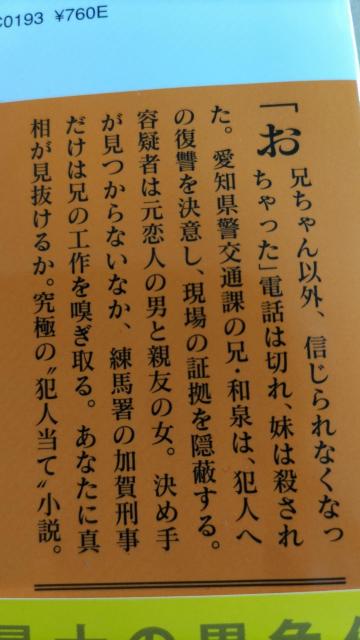 C0193 ¥760E
「お兄ちゃん以外、信じられなくなっ
ちゃった」電話は切れ、妹は殺され
た。愛知県警交通課の兄・和泉は、犯人へ
の復讐を決意し、現場の証拠を隠蔽する。
容疑者は元恋人の男と親友の女。決め手
が見つからないなか、練馬署の加賀刑事
だけは兄の工作を嗅ぎ取る。あなたに真
相が見抜けるか。究極の〝犯人当て〟小説。